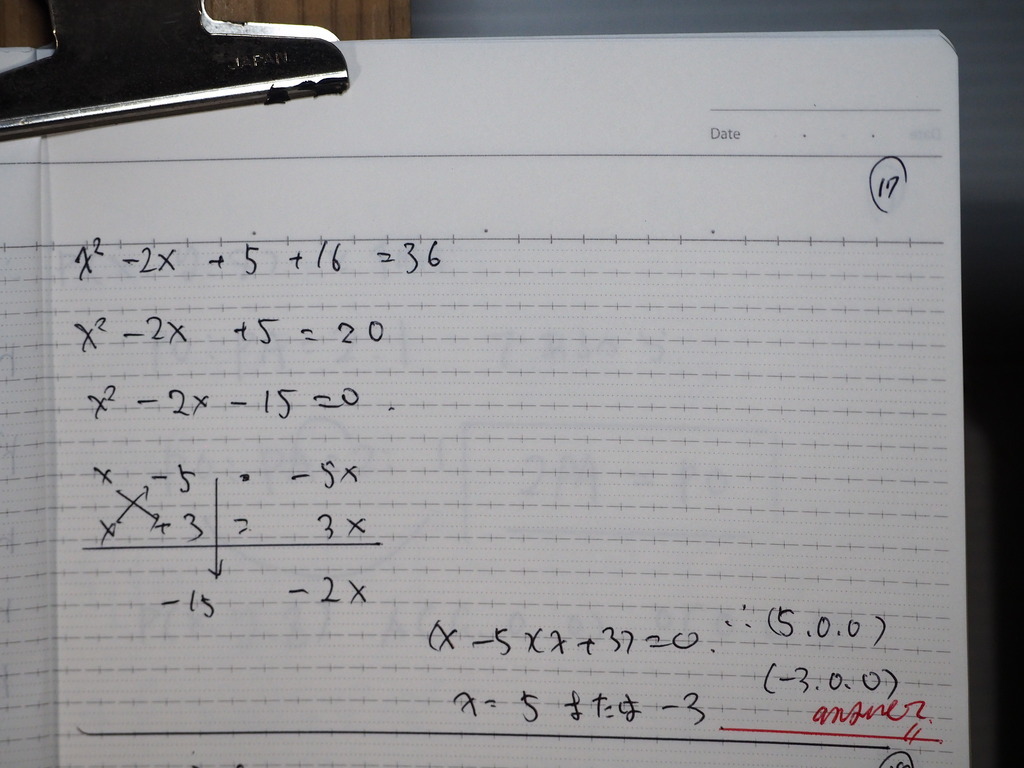 JAPAN
Date
17
x² -2x +5 +16 =36
x² -2x +5 = 20
x² - 2x - 15 =0.
x -5 · -5x
x +3 = 3x
-15 -2x
(x -5)(x+3)=0. ∴ (5.0.0)
(-3.0.0)
x= 5 または -3
answer